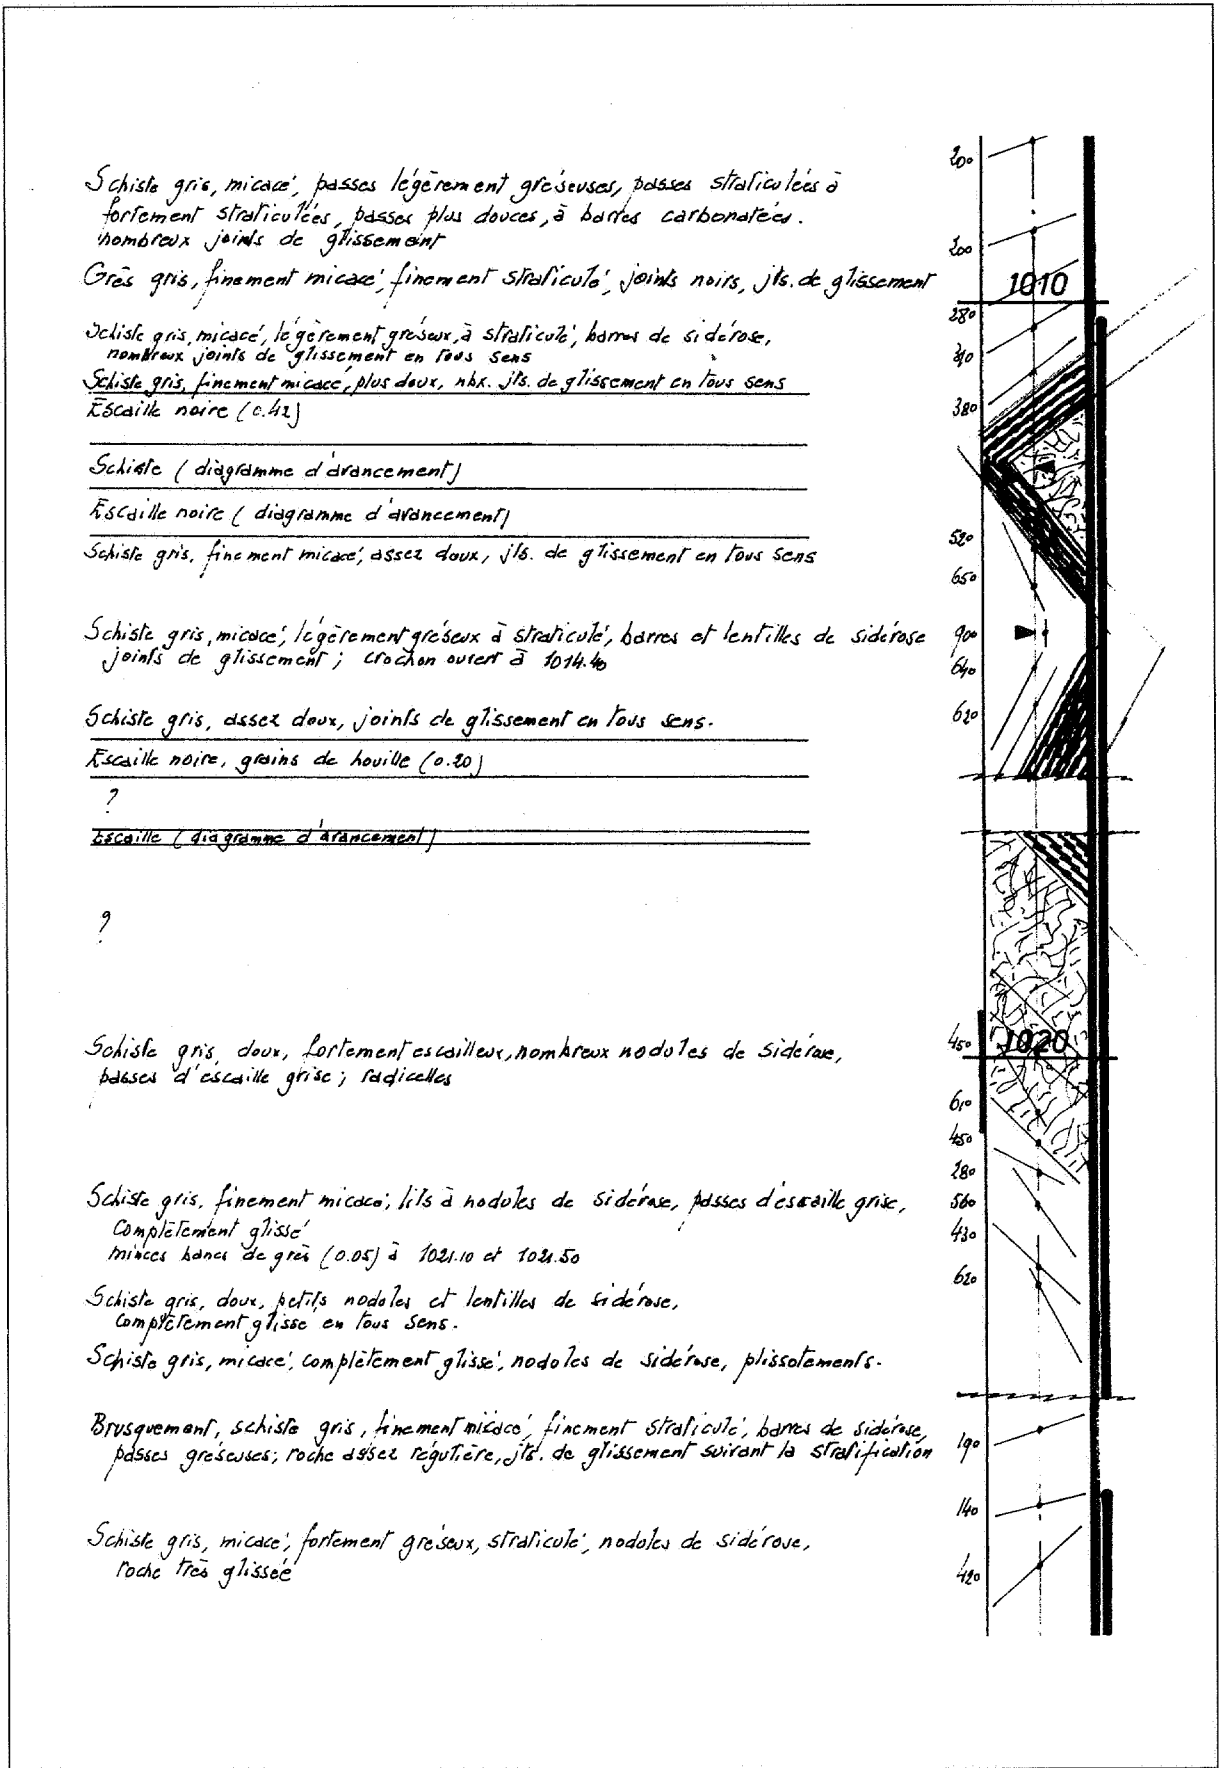 Schiste gris, micacé, passes légèrement gréseuses, passes straticulées à
fortement straticulées, passes plus douces, à barres carbonatées.
nombreux joints de glissement
Grès gris, finement micacé, finement straticulé, joints noirs, jts. de glissement
Schiste gris, micacé, légèrement gréseux, à straticulé, barres de sidérose,
nombreux joints de glissement en tous sens
Schiste gris, finement micacé, plus doux, nbx. jts. de glissement en tous sens
Escaille noire (0.42)
Schiste (diagramme d'avancement)
Escaille noire (diagramme d'avancement)
Schiste gris, finement micacé, assez doux, jts. de glissement en tous sens
Schiste gris, micacé, légèrement gréseux à straticulé, barres et lentilles de sidérose
joints de glissement ; crochon ouvert à 1014.40
Schiste gris, assez doux, joints de glissement en tous sens.
Escaille noire, grains de houille (0.20)
?
Escaille (diagramme d'avancement)
?
Schiste gris, doux, fortement escailleux, nombreux nodules de sidérose,
passes d'escaille grise ; radicelles
Schiste gris, finement micacé, lits à nodules de sidérose, passes d'escaille grise,
complètement glissé
minces bancs de grès (0.05) à 1021.10 et 1021.50
Schiste gris, doux, petits nodules et lentilles de sidérose,
complètement glissé en tous sens.
Schiste gris, micacé, complètement glissé, nodules de sidérose, plissotements.
Brusquement, schiste gris, finement micacé, finement straticulé, barres de sidérose,
passes gréseuses; roche assez régulière, jts. de glissement suivant la stratification
Schiste gris, micacé, fortement gréseux, straticulé, nodules de sidérose,
roche très glissée
20°
20°
1010
28°
31°
38°
52°
65°
90°
64°
62°
45°
1020
61°
45°
28°
58°
43°
62°
19°
14°
42°